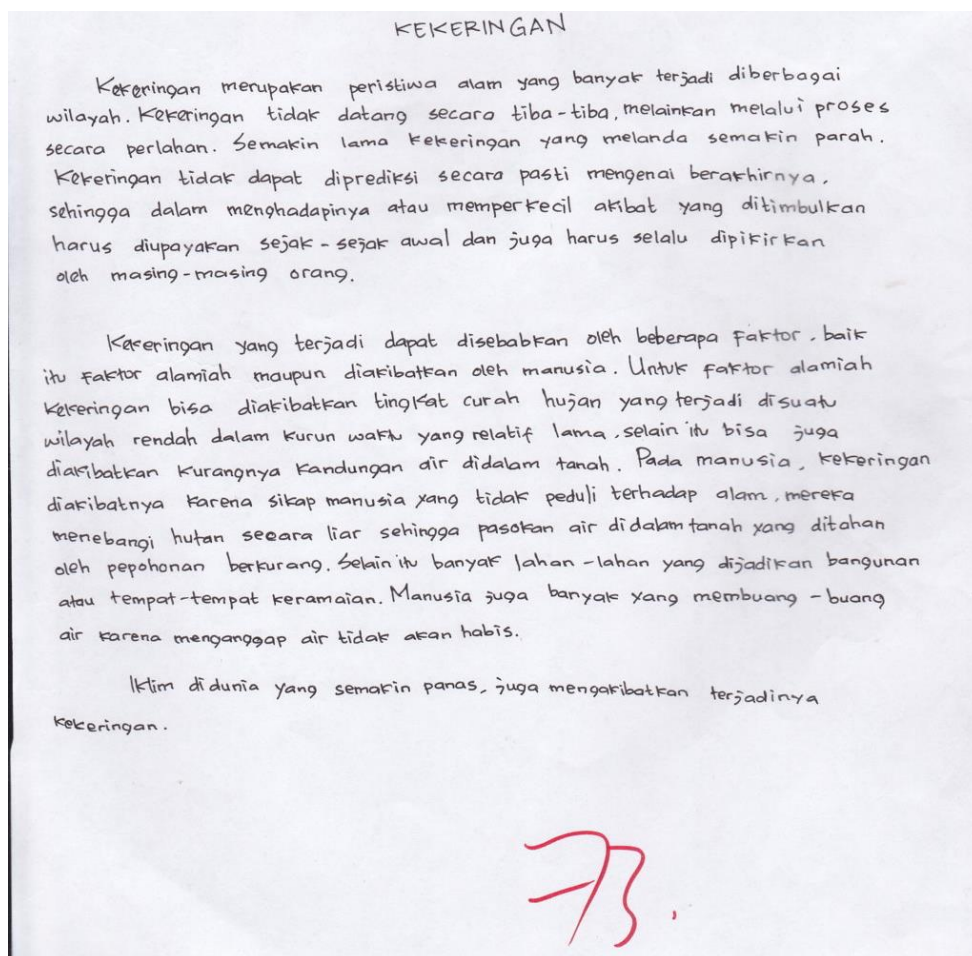 KEKERINGAN
Kekeringan merupakan peristiwa alam yang banyak terjadi diberbagai
wilayah. Kekeringan tidak datang secara tiba-tiba, melainkan melalui proses
secara perlahan. Semakin lama kekeringan yang melanda semakin parah.
Kekeringan tidak dapat diprediksi secara pasti mengenai berakhirnya,
sehingga dalam menghadapinya atau memperkecil akibat yang ditimbulkan
harus diupayakan sejak-sejak awal dan juga harus selalu dipikirkan
oleh masing-masing orang.
Kekeringan yang terjadi dapat disebabkan oleh beberapa faktor, baik
itu faktor alamiah maupun diakibatkan oleh manusia. Untuk faktor alamiah
kekeringan bisa diakibatkan tingkat curah hujan yang terjadi disuatu
wilayah rendah dalam kurun waktu yang relatif lama, selain itu bisa juga
diakibatkan kurangnya kandungan air didalam tanah. Pada manusia, kekeringan
diakibatnya karena sikap manusia yang tidak peduli terhadap alam, mereka
menebangi hutan secara liar sehingga pasokan air didalam tanah yang ditahan
oleh pepohonan berkurang. Selain itu banyak lahan-lahan yang dijadikan bangunan
atau tempat-tempat keramaian. Manusia juga banyak yang membuang-buang
air karena menganggap air tidak akan habis.
Iklim didunia yang semakin panas, juga mengakibatkan terjadinya
kekeringan.
73.